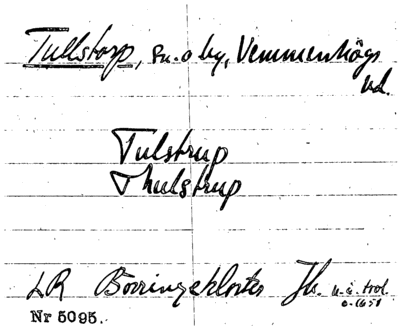 Tullstorp, sn. o by, Vemmenhögs
hd.
Tulstrup
Thulstrup
LR Börringekloster Jb. u. å. trol.
Nr 5095.